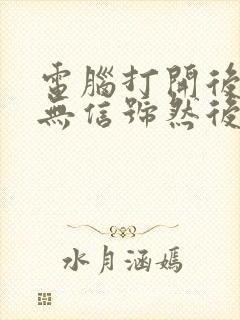 電腦打開後
無信號然後
水月涵嫣